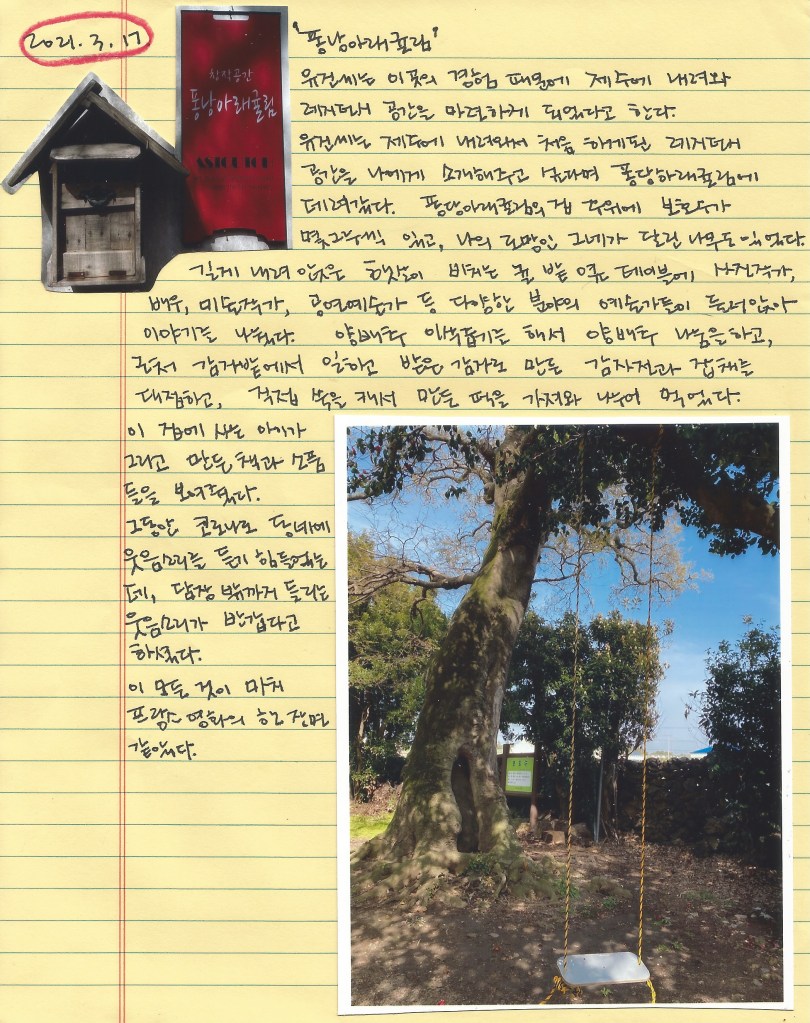 2021. 3. 17
창작공간
퐁낭아래귤림
'퐁낭아래귤림'
유진씨는 이곳의 경험 때문에 제주에 내려와
레지던시 공간을 마련하게 되었다고 한다.
유진씨는 제주에 내려와서 처음 하게된 레지던시
공간을 나에게 소개해주고 싶다며 퐁낭아래귤림에
데려갔다. 퐁낭아래귤림의 집 주위에 보호수가
몇그루씩 있고, 나의 로망인 그네가 달린 나무도 있었다.
길게 내려 앉은 햇살이 비치는 귤 밭 옆 테이블에 사진작가,
배우, 미술작가, 공연예술가 등 다양한 분야의 예술가들이 둘러앉아
이야기를 나눴다. 양배추 이삭줍기를 해서 양배추 나눔을 하고,
근처 감자밭에서 일하고 받은 감자로 만든 감자전과 잡채를
대접하고, 직접 쑥을 캐서 만든 떡을 가져와 나누어 먹었다.
이 집에 사는 아이가
그리고 만든 책과 소품
들을 보여줬다.
그동안 코로나로 동네에
웃음소리를 듣기 힘들었는
데, 담장 밖까지 들리는
웃음소리가 반갑다고
하셨다.
이 모든 것이 마치
프랑스 영화의 한 장면
같았다.
보호수